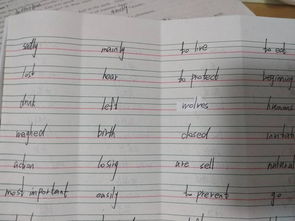 sadly mainly to live to eat
lost hear to protect beginning
drink left wolves humans
birth closed
action losing are sell natural
most important easily to prevent go